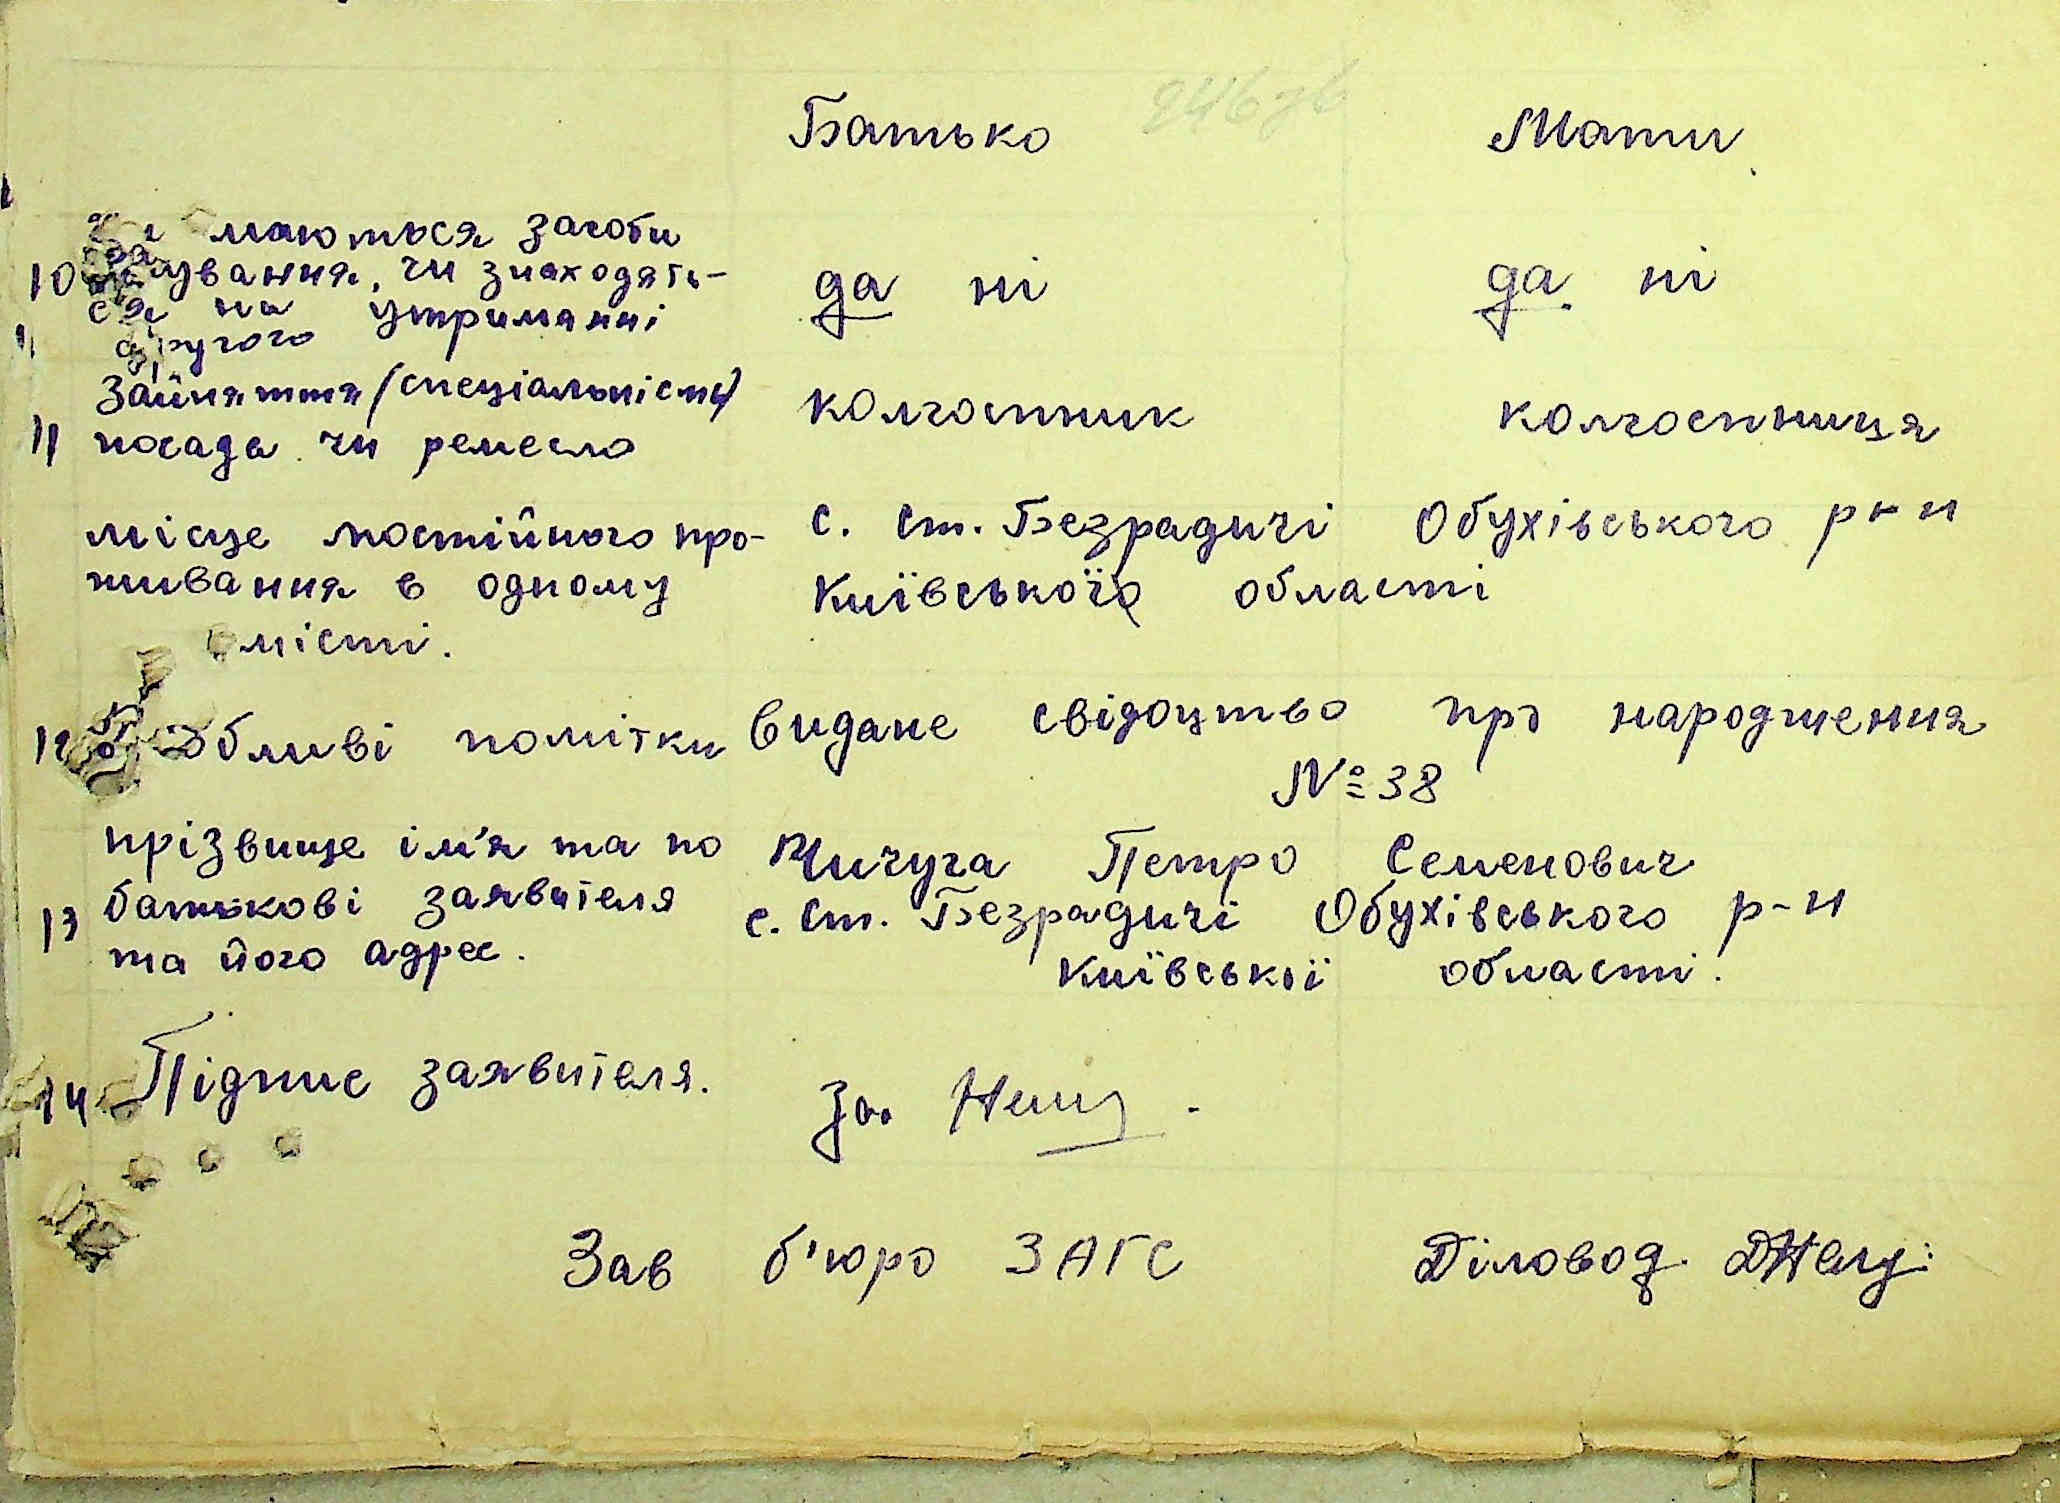 246зв
Батько Мати
маються засоби
10 існування, чи знаходять- да ні да ні
ся на утриманні
другого
Зайняття (спеціальність)
11 посада чи ремесло колгоспник колгоспниця
місце постійного про- с. Ст. Безрадичі Обухівського р-н
живання в одному Київської області
місті.
12 Обливі помітки Видане свідоцтво про народження
№ 38
прізвище ім'я та по Чичуга Петро Семенович
13 батькові заявителя с. Ст. Безрадичі Обухівського р-н
та його адрес. Київської області.
14 Підпис заявителя. За
Зав б'юро ЗАГС Діловод